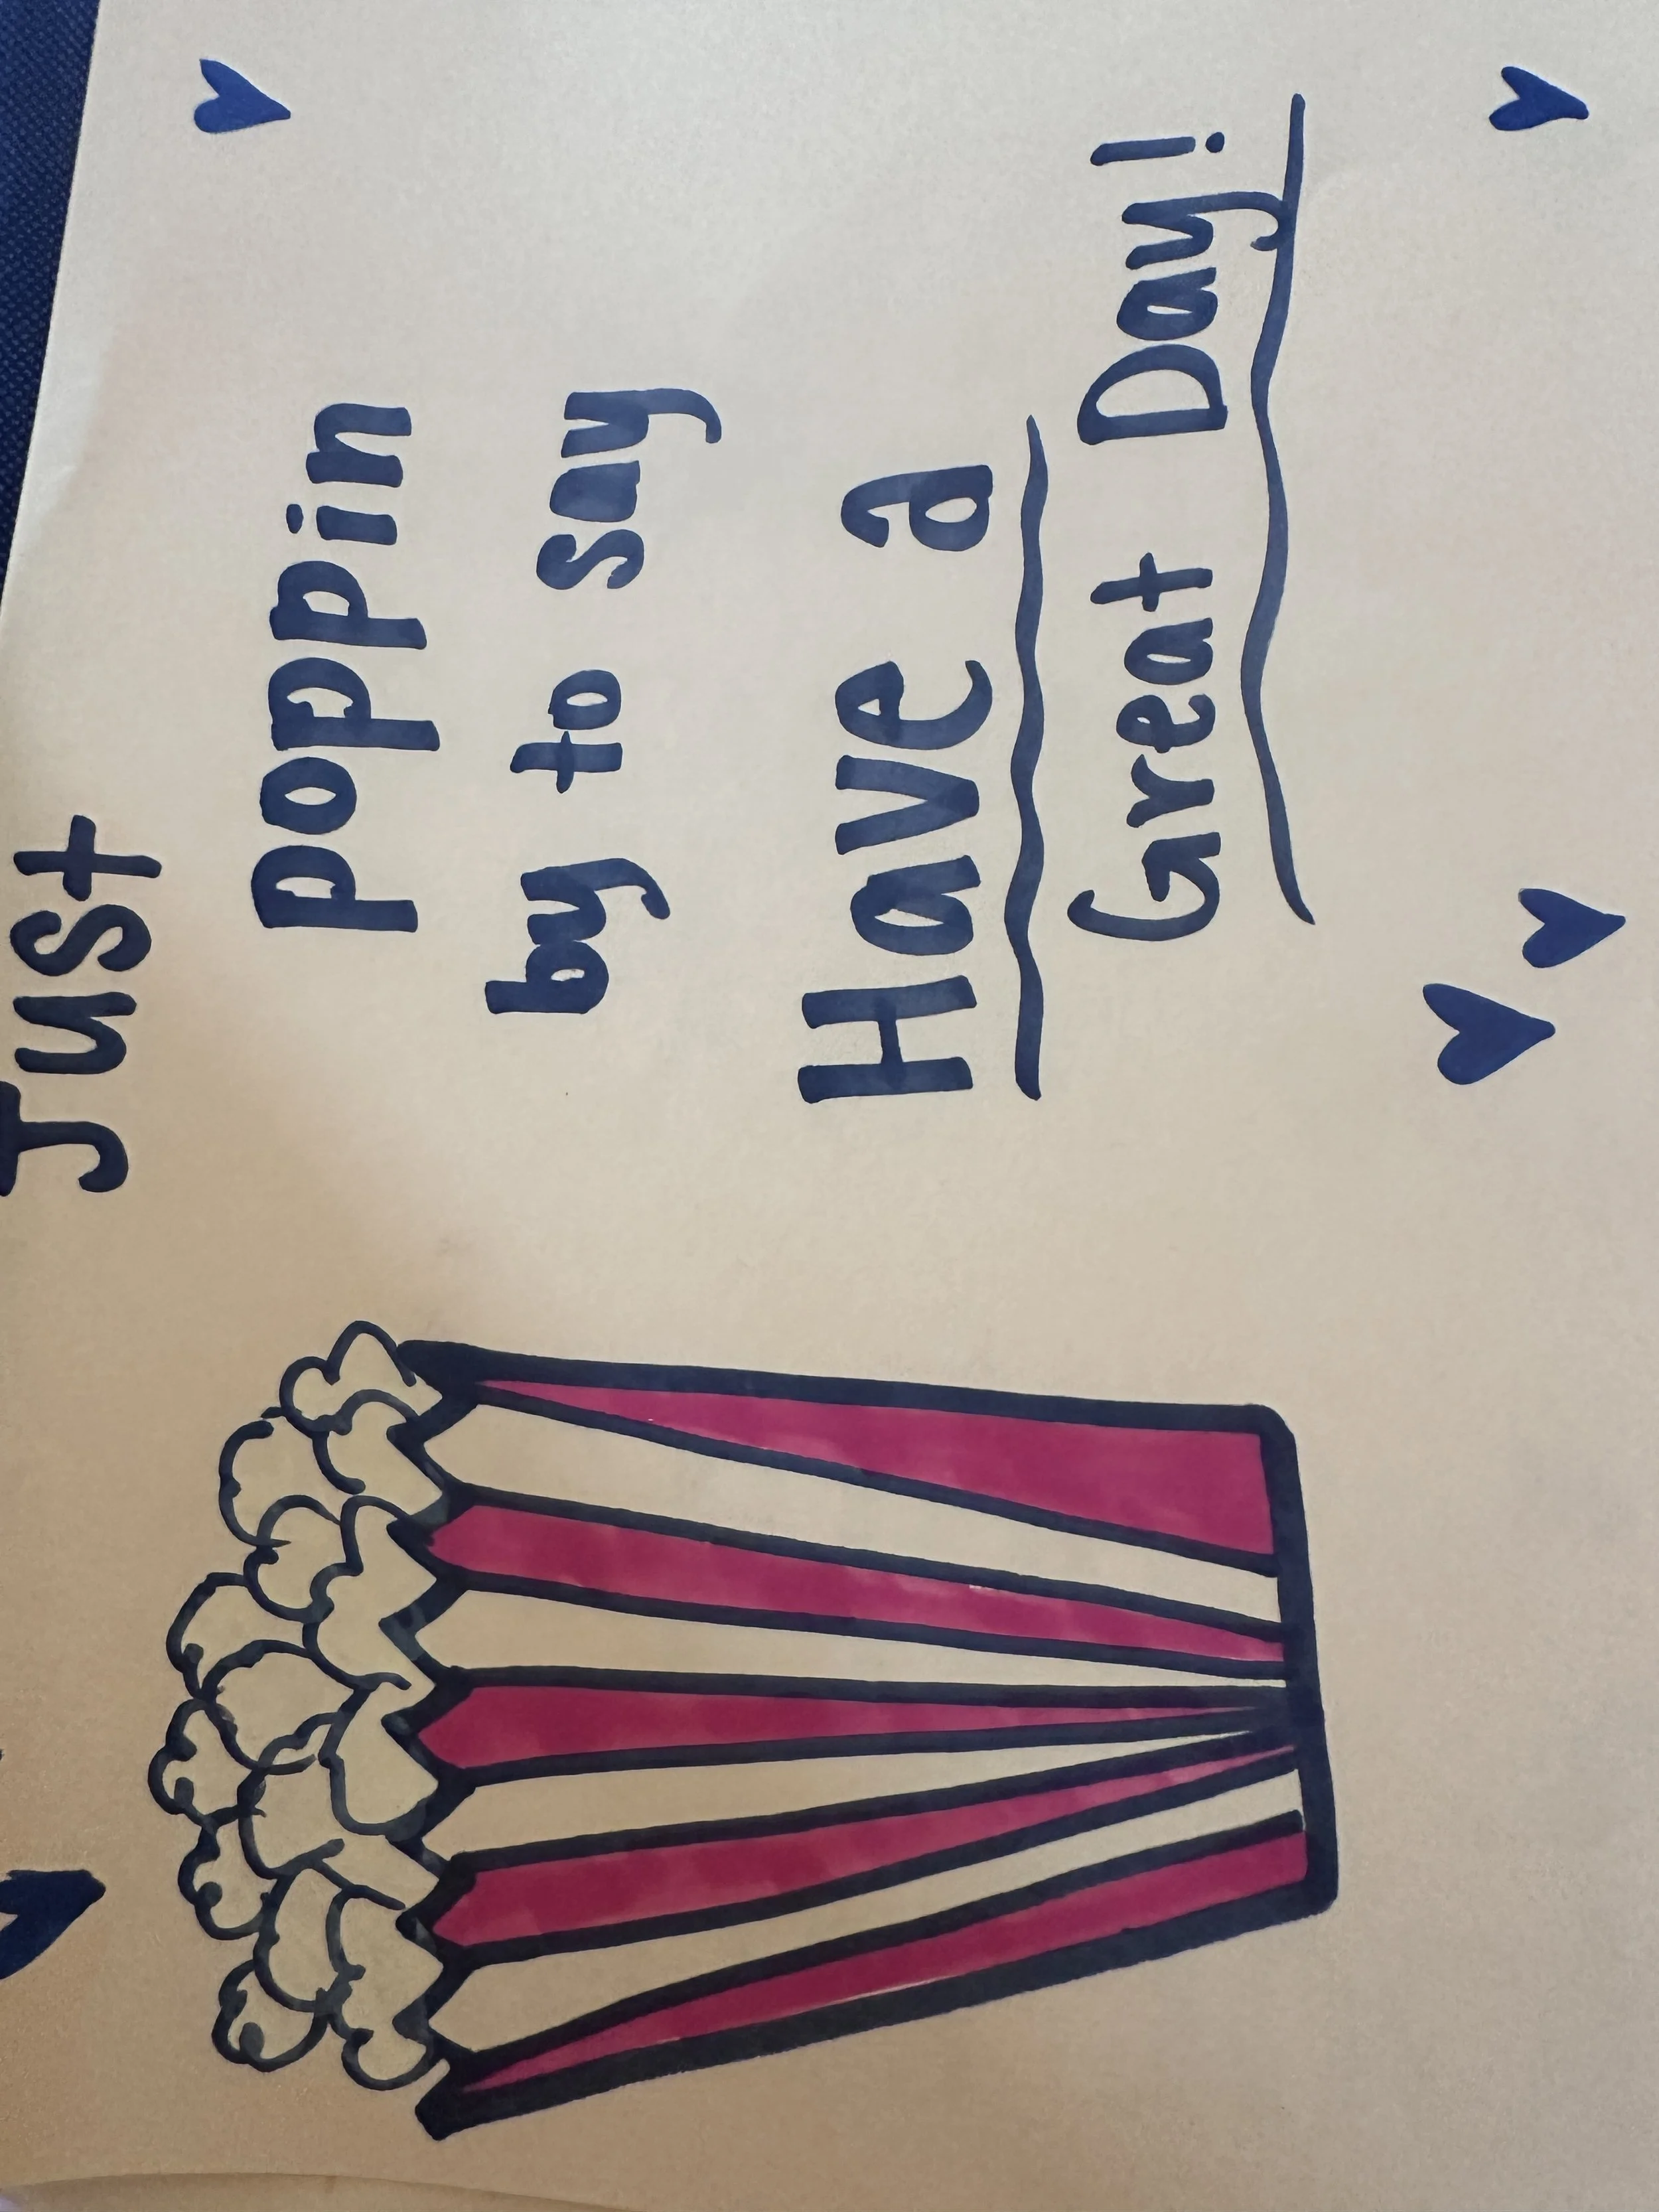 Just
poppin
by to say
Have a
Great Day!